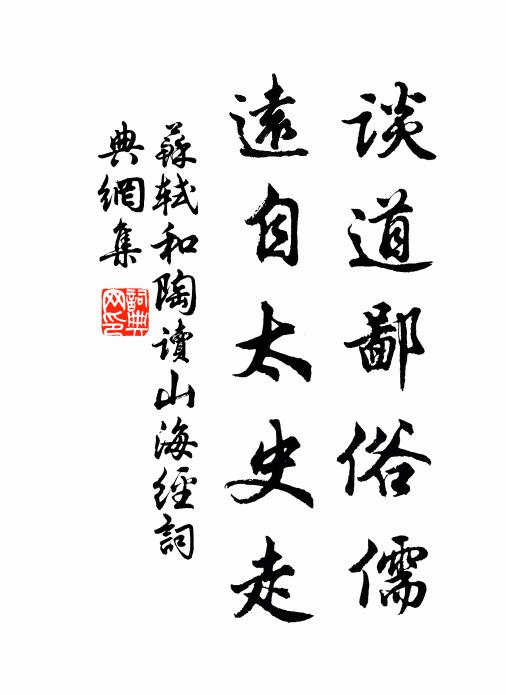 談道鄙俗儒
遠自太史走
蘇軾和陶讀山海經詞
典網集
詞典
網印